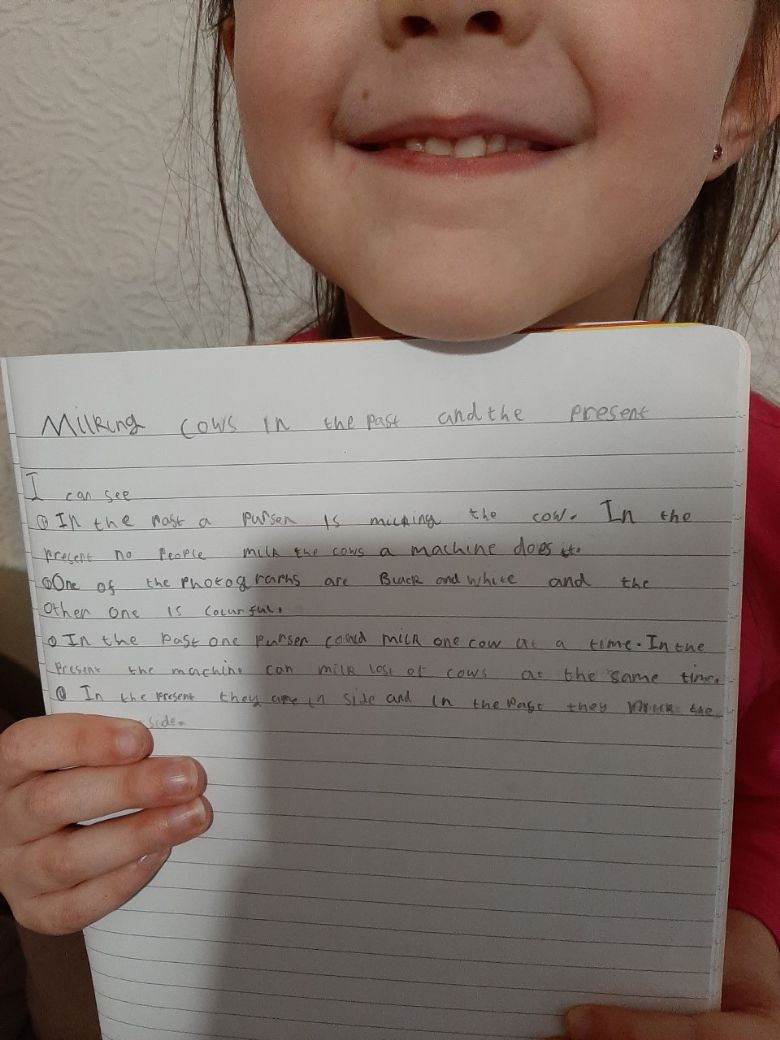 Milking cows in the past and the present
I can see
In the past a pursen is milking the cow. In the
present no people milk the cows a machine does it.
One of the photographs are Black and white and the
other one is colurful.
In the past one pursen could milk one cow at a time. In the
present the machine can milk lost of cows at the same time.
In the present they are in side and in the past they
side.